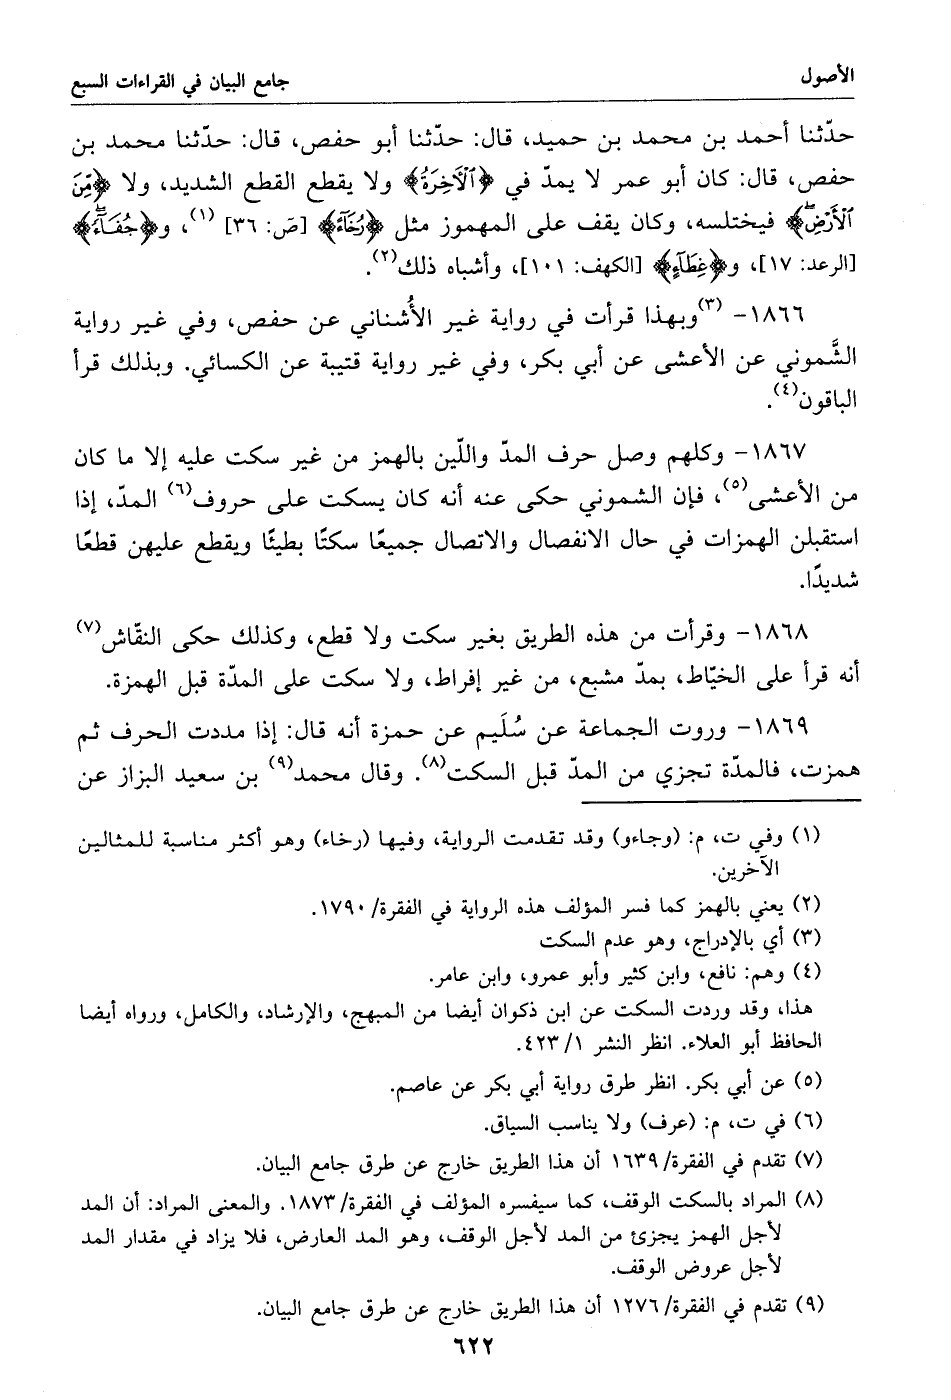 الأصول
جامع البيان في القراءات السبع
حدّثنا أحمد بن محمد بن حميد، قال: حدّثنا أبو حفص، قال: حدّثنا محمد بن
حفص، قال: كان أبو عمر لا يمدّ في ﴿ٱلْأَخِرَةُ﴾ ولا يقطع القطع الشديد، ولا ﴿مِّنَ
ٱلْأَرْضِۖ﴾ فيختلسه، وكان يقف على المهموز مثل ﴿رُخَآءً﴾ [صَ: ٣٦] (١)، و﴿جُفَآءًۖ﴾
[الرعد: ١٧]، و﴿غِطَآءٍ﴾ [الكهف: ١٠١]، وأشباه ذلك(٢).
١٨٦٦- (٣)وبهذا قرأت في رواية غير الأُشناني عن حفص، وفي غير رواية
الشَّموني عن الأعشى عن أبي بكر، وفي غير رواية قتيبة عن الكسائي. وبذلك قرأ
الباقون(٤).
١٨٦٧- وكلهم وصل حرف المدّ واللّين بالهمز من غير سكت عليه إلا ما كان
من الأعشى(٥)، فإن الشموني حكى عنه أنه كان يسكت على حروف(٦) المدّ، إذا
استقبلن الهمزات في حال الانفصال والاتصال جميعًا سكتًا بطيئًا ويقطع عليهن قطعًا
شديدًا.
١٨٦٨- وقرأت من هذه الطريق بغير سكت ولا قطع، وكذلك حكى النقّاش(٧)
أنه قرأ على الخيّاط، بمدّ مشبع، من غير إفراط، ولا سكت على المدّة قبل الهمزة.
١٨٦٩- وروت الجماعة عن سُلَيم عن حمزة أنه قال: إذا مددت الحرف ثم
همزت، فالمدّة تجزي من المدّ قبل السكت(٨). وقال محمد(٩) بن سعيد البزاز عن
(١) وفي ت، م: (وجاءو) وقد تقدمت الرواية، وفيها (رخاء) وهو أكثر مناسبة للمثالين
الآخرين.
(٢) يعني بالهمز كما فسر المؤلف هذه الرواية في الفقرة/ ١٧٩٠.
(٣) أي بالإدراج، وهو عدم السكت
(٤) وهم: نافع، وابن كثير وأبو عمرو، وابن عامر.
هذا، وقد وردت السكت عن ابن ذكوان أيضا من المبهج، والإرشاد، والكامل، ورواه أيضا
الحافظ أبو العلاء. انظر النشر ١/ ٤٢٣.
(٥) عن أبي بكر. انظر طرق رواية أبي بكر عن عاصم.
(٦) في ت، م: (عرف) ولا يناسب السياق.
(٧) تقدم في الفقرة/ ١٦٣٩ أن هذا الطريق خارج عن طرق جامع البيان.
(٨) المراد بالسكت الوقف، كما سيفسره المؤلف في الفقرة/ ١٨٧٣. والمعنى المراد: أن المد
لأجل الهمز يجزئ من المد لأجل الوقف، وهو المد العارض، فلا يزاد في مقدار المد
لأجل عروض الوقف.
(٩) تقدم في الفقرة/ ١٢٧٦ أن هذا الطريق خارج عن طرق جامع البيان.
٦٢٢